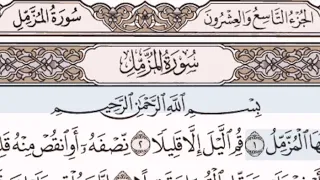 الجزء التاسع والعشرون سورة المزمل
سُورَةُ المُزَّمِّل
بِسْمِ اللَّهِ الرَّحْمَٰنِ الرَّحِيمِ
الْمُزَّمِّلُ ١ قُمِ اللَّيْلَ إِلَّا قَلِيلًا ٢ نِّصْفَهُ أَوِ انقُصْ مِنْهُ